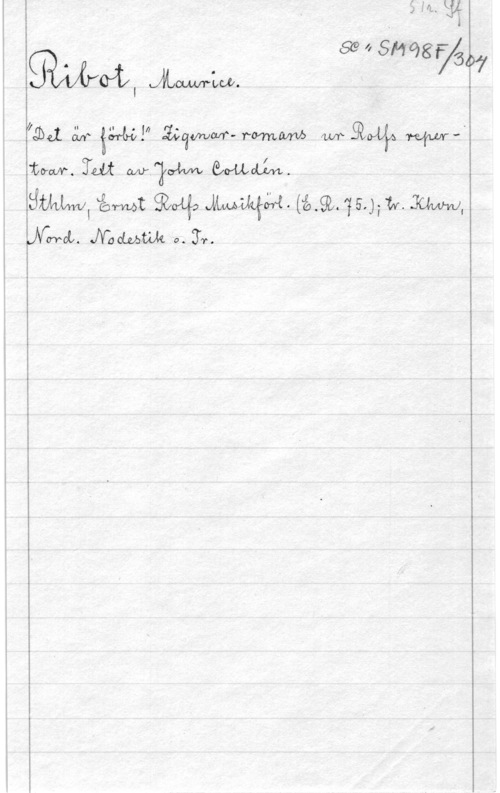 Se " SM98F/304
Ribot, Maurice.
"Det är förbi!" Zigenar-romans ur Rolfs reper-
toar. Text av John Colldén.
Sthlm, Ernst Rolfs Musikförl. (E.R. 75.); tr. Khvn,
Nord. Nodestik o. Tr.